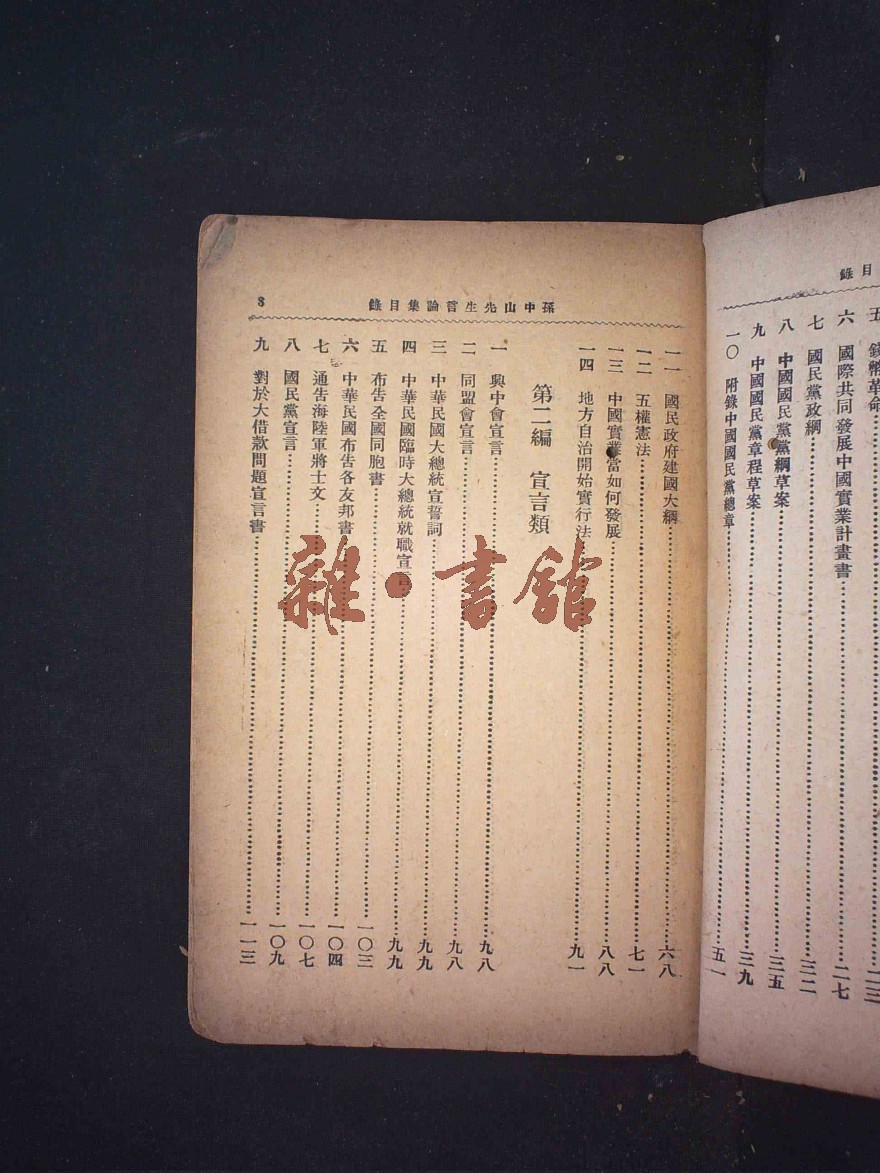 目錄
五 錢幣革命……二三
六 國際共同發展中國實業計畫書……二七
七 國民黨政綱……三二
八 中國國民黨黨綱草案……三五
九 中國國民黨章程草案……三九
一〇 附錄中國國民黨總章……五一
孫中山先生言論集目錄
3
一一 國民政府建國大綱……六八
一二 五權憲法……七一
一三 中國實業當如何發展……八八
一四 地方自治開始實行法……九一
第二編 宣言類
一 興中會宣言……九八
二 同盟會宣言……九八
三 中華民國大總統宣誓詞……九九
四 中華民國臨時大總統就職宣言……九九
五 布告全國同胞書……一〇三
六 中華民國布告各友邦書……一〇四
七 通告海陸軍將士文……一〇七
八 國民黨宣言……一〇九
九 對於大借款問題宣言書……一一三
雜·書館